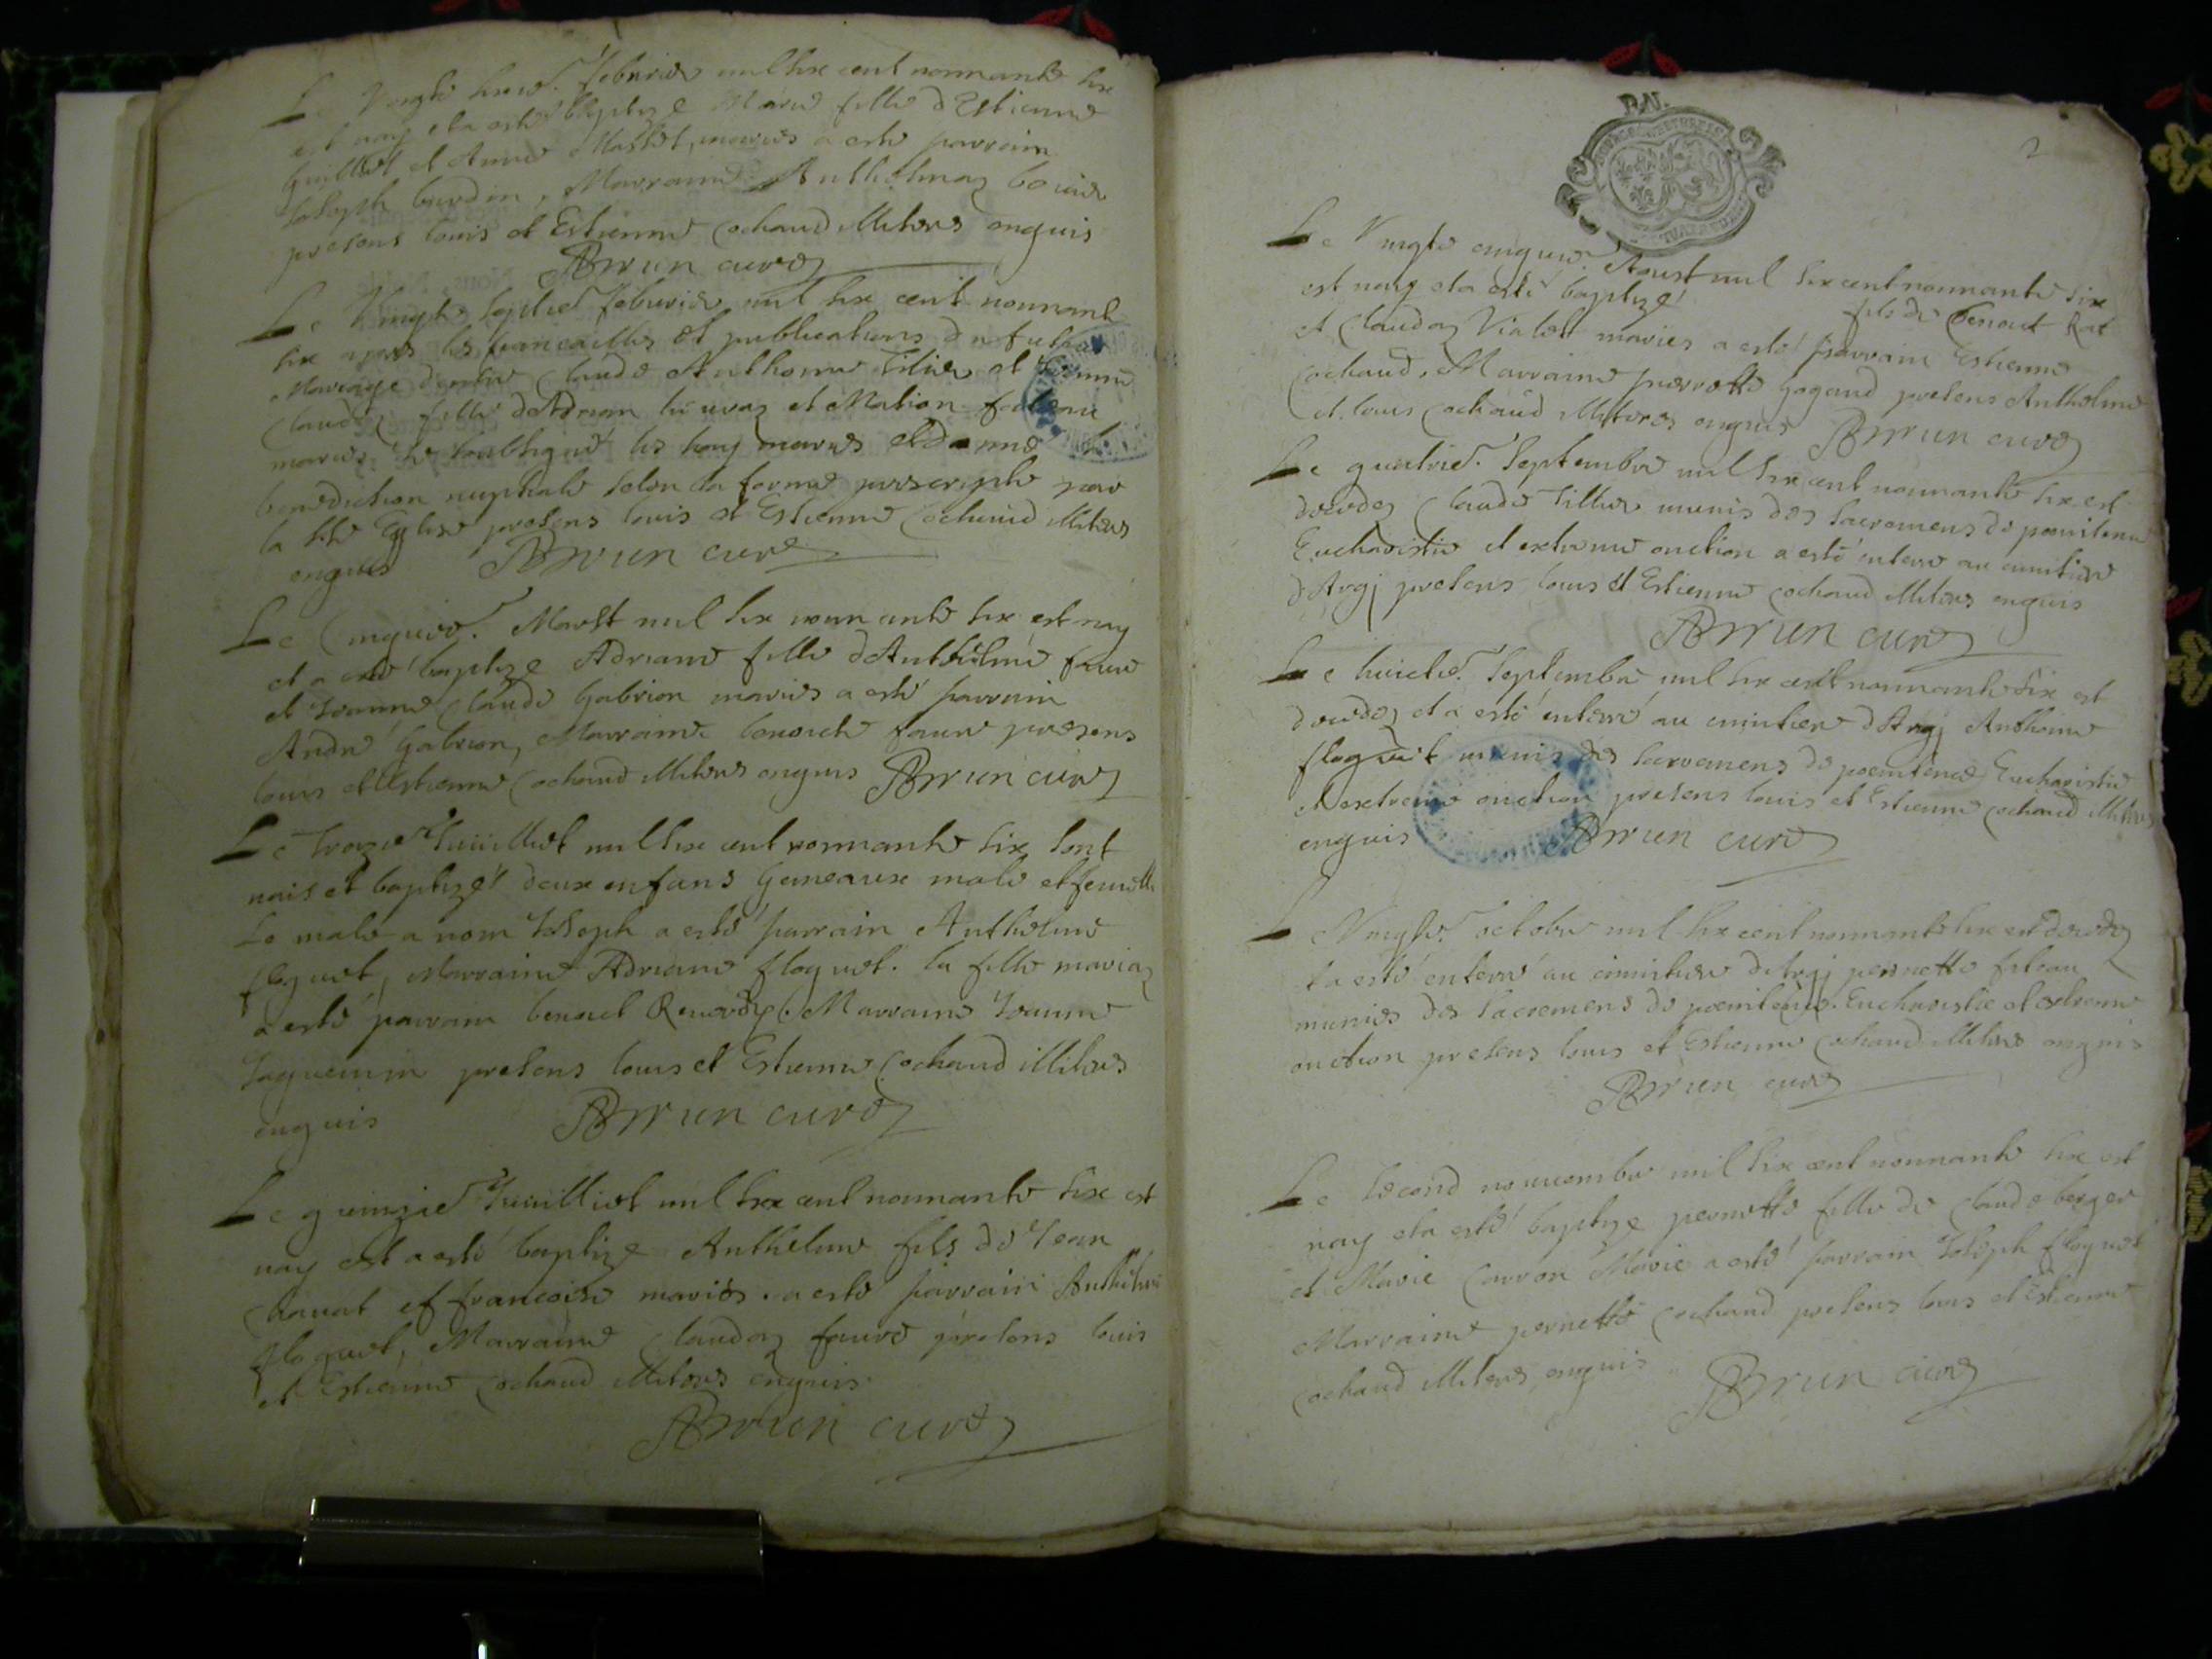 Le Vingte sixie. febvrier mil six cent nonnante six
est nay et a esté baptizé Marie fille d'Estienne
Guillot et Anne mariés a esté parrain
Joseph burdin, Marraine Anthelmaz bovier
presens louis et Estienne Cochand illiteres enquis
ABrrun curé
Le Vingte septie febvrier mil six cent nonnant
six apres les fiancailles et publications du futur
Mariage d'entre Claude Anthoine Tilier et
Claudaz fille d'Adrian et
mariés Je soubsigné les hay mariés et donné
benediction nuptiale selon la forme prescripte par
la ste Eglise presens louis et Estienne Cochand illiteres
enquis ABrrun curé
Le Cinquie. Marst mil six nonnante six est nay
et a esté baptizé Adriane fille d'Anthelme faure
et Jeanne Claude Gabrion mariés a esté parrain
André Gabrion, Marraine benoite faure presens
louis et Estienne Cochand illiteres enquis ABrrun curé
Le Trezie Juillet mil six cent nonnante six sont
nais et baptizé deux enfans Gemeaux male et femelle
Le male a nom Joseph a esté parrain Anthelme
floquet, Marraine Adriane floquet. la fille mariaz
a esté parrain benoit Marraine Jeanne
Jaquemin presens louis et Estienne Cochand illiteres
enquis ABrrun curé
Le quinzie Juillet mil six cent nonnante six est
nay est a esté baptizé Anthelme fils de Jean
Chanat et francoise mariés. a esté parrain Anthelme
floquet, Marraine Claudaz faure presens louis
et Estienne Cochand illiteres enquis
ABrrun curé
P.N.
2
Le Vingte cinquie. Aoust mil six cent nonnante six
est nay et a esté baptizé fils de Benoit Rat
et Claudaz Vialet mariés a esté parrain Estienne
Cochand, Marraine pierrette Gogand presens Anthelme
et louis Cochand illiteres enquis ABrrun curé
Le quatrie. Septembre mil six cent nonnante six est
decedez Claude Tillier munis des sacremens de poenitence
Eucharistie et extreme onction a esté enterré au cimitiere
d'Argj presens louis et Estienne Cochand illiteres enquis
ABrrun curé
Le huictie. Septembre mil six cent nonnante six est
decedez et a esté enterré au cimitiere d'Argj Anthoine
floquet munis des sacremens de poenitence Eucharistie
et extreme onction presens louis et Estienne Cochand illiteres
enquis ABrrun curé
L Vingtie. octobre mil six cent nonnante six est decedez
et a esté enterré au cimitiere d'Argj pernette
munies des sacremens de poenitence. Eucharistie et extreme
onction presens louis et Estienne Cochand illiteres enquis
ABrrun curé
Le second novembre mil six cent nonnante six est
nay et a esté baptizé pernette fille de Claude berger
et Marie Carron Marié a esté parrain Joseph floquet
Marraine pernette Cochand presens louis et Estienne
Cochand illiteres enquis ABrrun curé